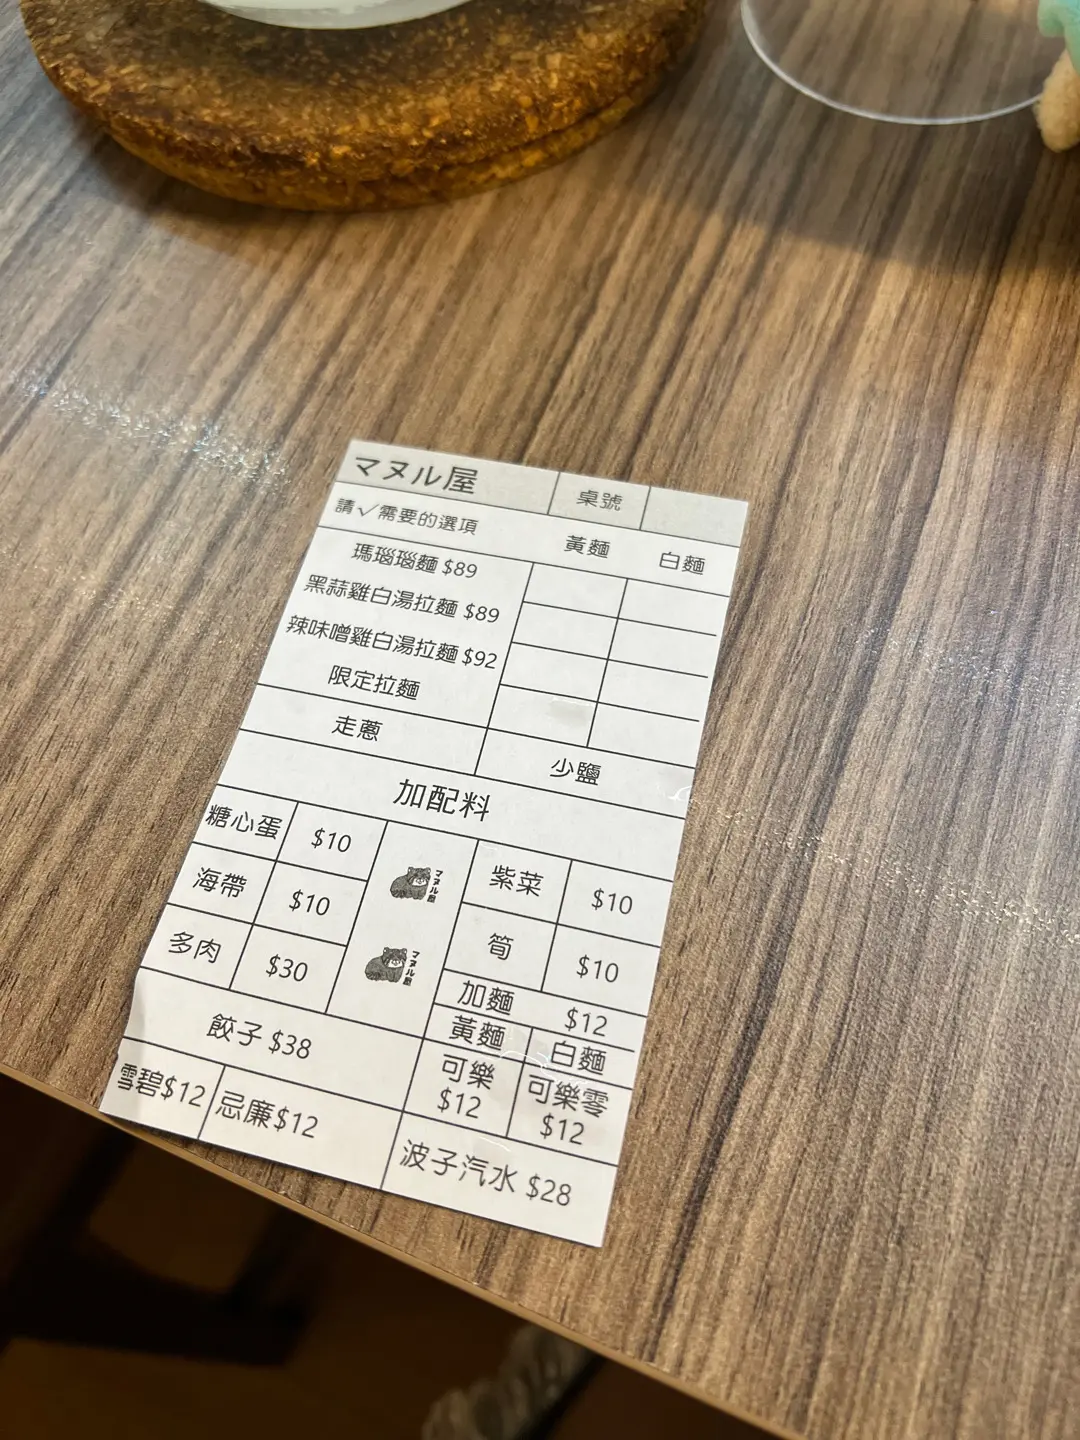 マヌル屋 桌號
請✓需要的選項 黃麵 白麵
瑪瑙瑙麵 $89
黑蒜雞白湯拉麵 $89
辣味噌雞白湯拉麵 $92
限定拉麵
走蔥 少鹽
加配料
糖心蛋 $10 紫菜 $10
海帶 $10 筍 $10
多肉 $30 加麵 $12
黃麵 白麵
餃子 $38 可樂 $12 可樂零 $12
雪碧$12 忌廉$12 波子汽水 $28
マヌル屋
マヌル屋